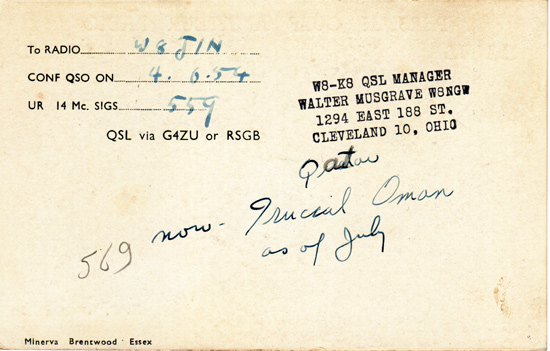 To RADIO W8JIN
CONF QSO ON 4. 6.54
UR 14 Mc. SIGS 559
QSL via G4ZU or RSGB
W8-K8 QSL MANAGER
WALTER MUSGRAVE W8NGW
1294 EAST 188 ST.
CLEVELAND 10, OHIO
Qatar
now - Trucial Oman
as of July
569
Minerva Brentwood Essex